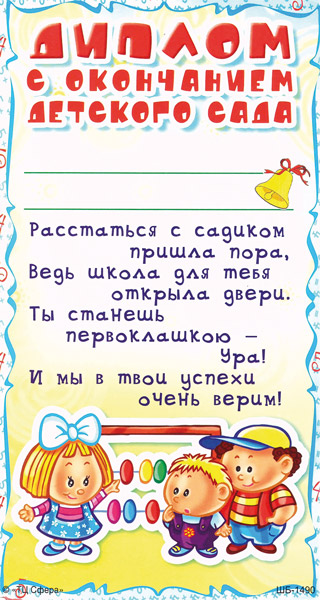 ДИПЛОМ
С ОКОНЧАНИЕМ
ДЕТСКОГО САДА
Расстаться с садиком
пришла пора,
Ведь школа для тебя
открыла двери.
Ты станешь
первоклашкою –
Ура!
И мы в твои успехи
очень верим!
© «ТЦ Сфера»
ШБ-1490